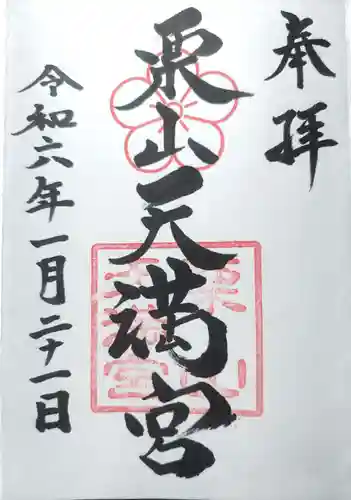 奉拝
栗山天満宮
令和六年一月二十一日
栗山
天満宮